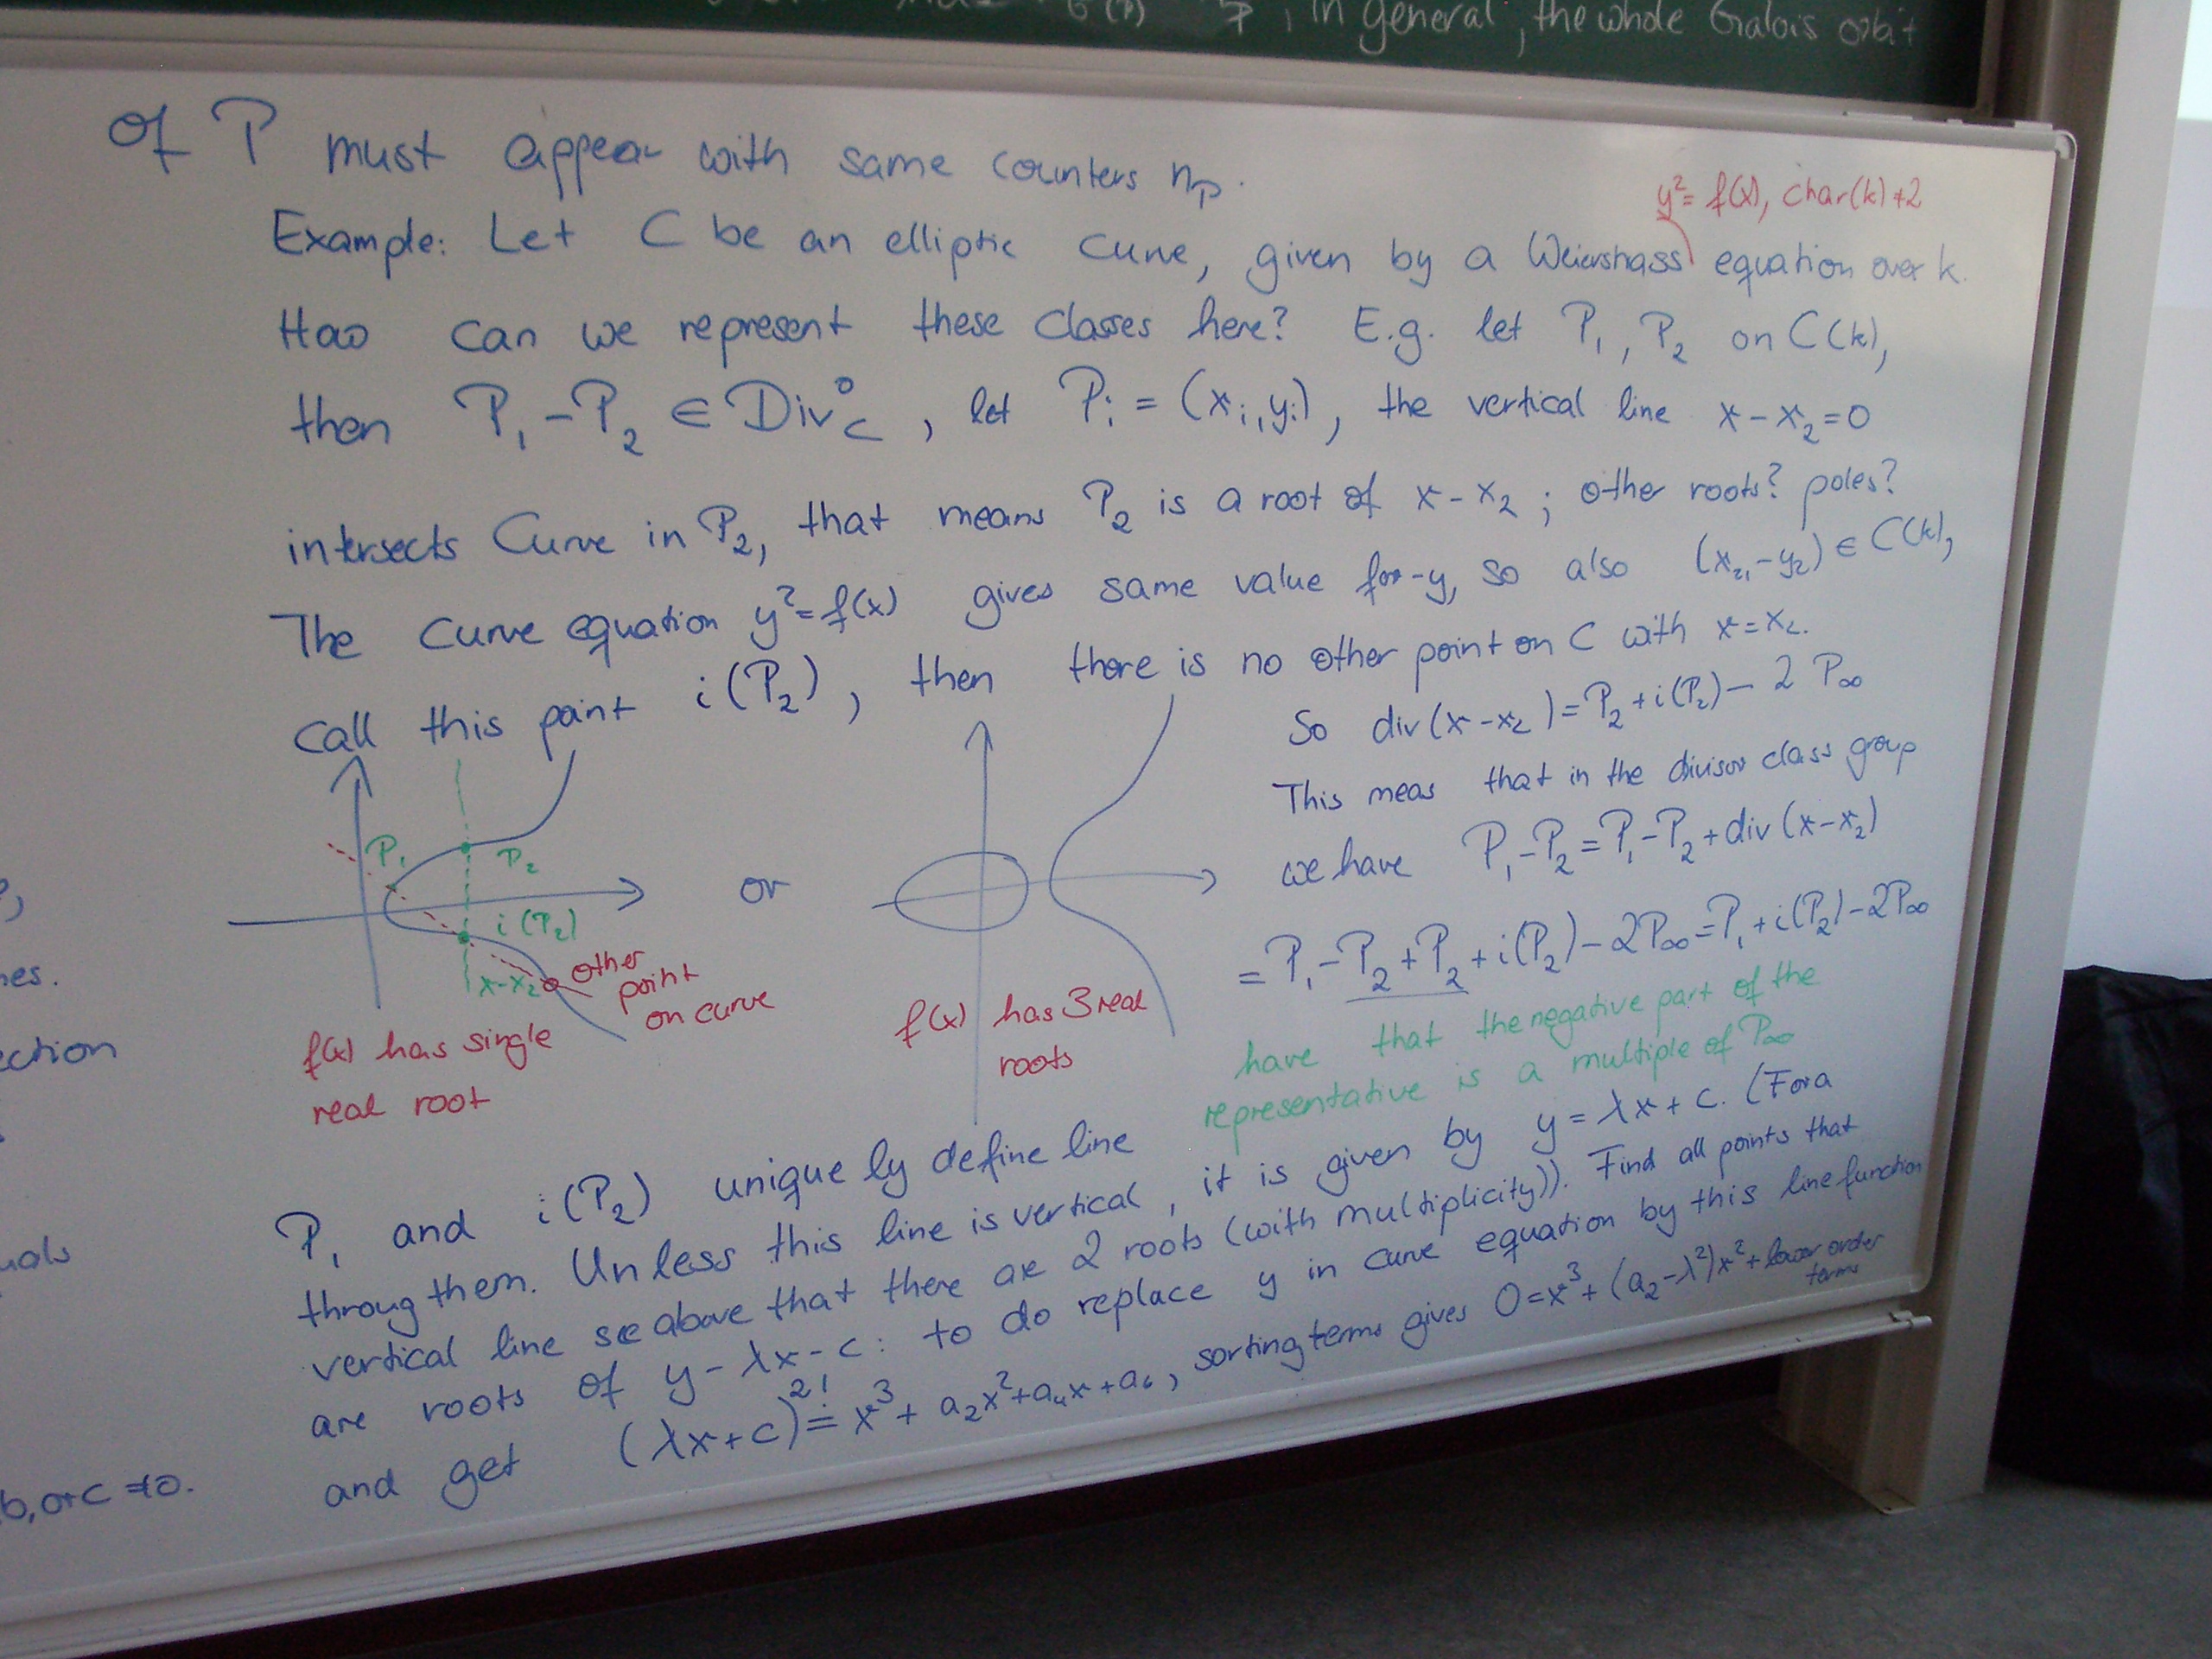 , in general, the whole Galois orbit
of P must appear with same counters n_P.
y² = f(x), char(k) ≠ 2
Example: Let C be an elliptic curve, given by a Weierstrass equation over k.
How can we represent these classes here? E.g. let P₁, P₂ on C(k),
then P₁ - P₂ ∈ Div°_C, let Pᵢ = (xᵢ, yᵢ), the vertical line x - x₂ = 0
intersects Curve in P₂, that means P₂ is a root of x - x₂ ; other roots? poles?
The curve equation y² = f(x) gives same value for -y, so also (x₂, -y₂) ∈ C(k),
call this point i(P₂), then there is no other point on C with x = x₂.
So div(x - x₂) = P₂ + i(P₂) - 2 P∞
This meas that in the divisor class group
we have P₁ - P₂ = P₁ - P₂ + div(x - x₂)
= P₁ - P₂ + P₂ + i(P₂) - 2P∞ = P₁ + i(P₂) - 2P∞
have that the negative part of the
representative is a multiple of P∞
P₁
P₂
i(P₂)
x - x₂
other
point
on curve
f(x) has single
real root
or
f(x) has 3 real
roots
P₁ and i(P₂) uniquely define line
throug them. Unless this line is vertical, it is given by y = λx + c. (For a
vertical line see above that there are 2 roots (with multiplicity)). Find all points that
are roots of y - λx - c : to do replace y in curve equation by this line function
and get (λx + c)² =! x³ + a₂x² + a₄x + a₆, sorting terms gives 0 = x³ + (a₂ - λ²)x² + lower order
terms
nes.
ection
uals
b, or c ≠ 0.